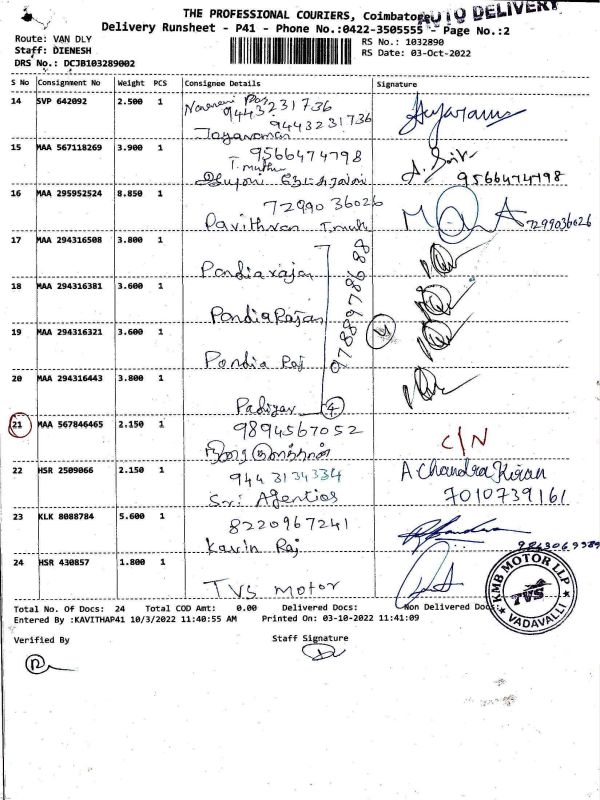 THE PROFESSIONAL COURIERS, Coimbatore
AUTO DELIVERY
Delivery Runsheet - P41 - Phone No.:0422-3505555 - Page No.:2
Route: VAN DLY
RS No.: 1032890
Staff: DIENESH
RS Date: 03-Oct-2022
DRS No.: DCJB103289002
S No Consignment No Weight PCS Consignee Details Signature
14 SVP 642092 2.500 1
9443231736
9443231736
Jayaraman
15 MAA 567118269 3.900 1 9566474798
T.muthu
9566474798
16 MAA 295952524 8.850 1 7299036026
Pavithran T.muth
7299036026
17 MAA 294316508 3.800 1
Pandiarajan
9788978688
18 MAA 294316381 3.600 1
PandiaRajan
19 MAA 294316321 3.600 1
Pandia Raj
20 MAA 294316443 3.800 1
4
21 MAA 567846465 2.150 1 9894567052
C/N
22 HSR 2509066 2.150 1 9443134334
A Chandra Kiran
Sri Agentios
7010739161
23 KLK 8088784 5.600 1 8220967241
Kavin Raj
24 HSR 430857 1.800 1
TVS motor
KMB MOTOR LLP
TVS
VADAVALLI
Total No. Of Docs: 24 Total COD Amt: 0.00 Delivered Docs: Non Delivered Docs:
Entered By :KAVITHAP41 10/3/2022 11:40:55 AM Printed On: 03-10-2022 11:41:09
Verified By Staff Signature